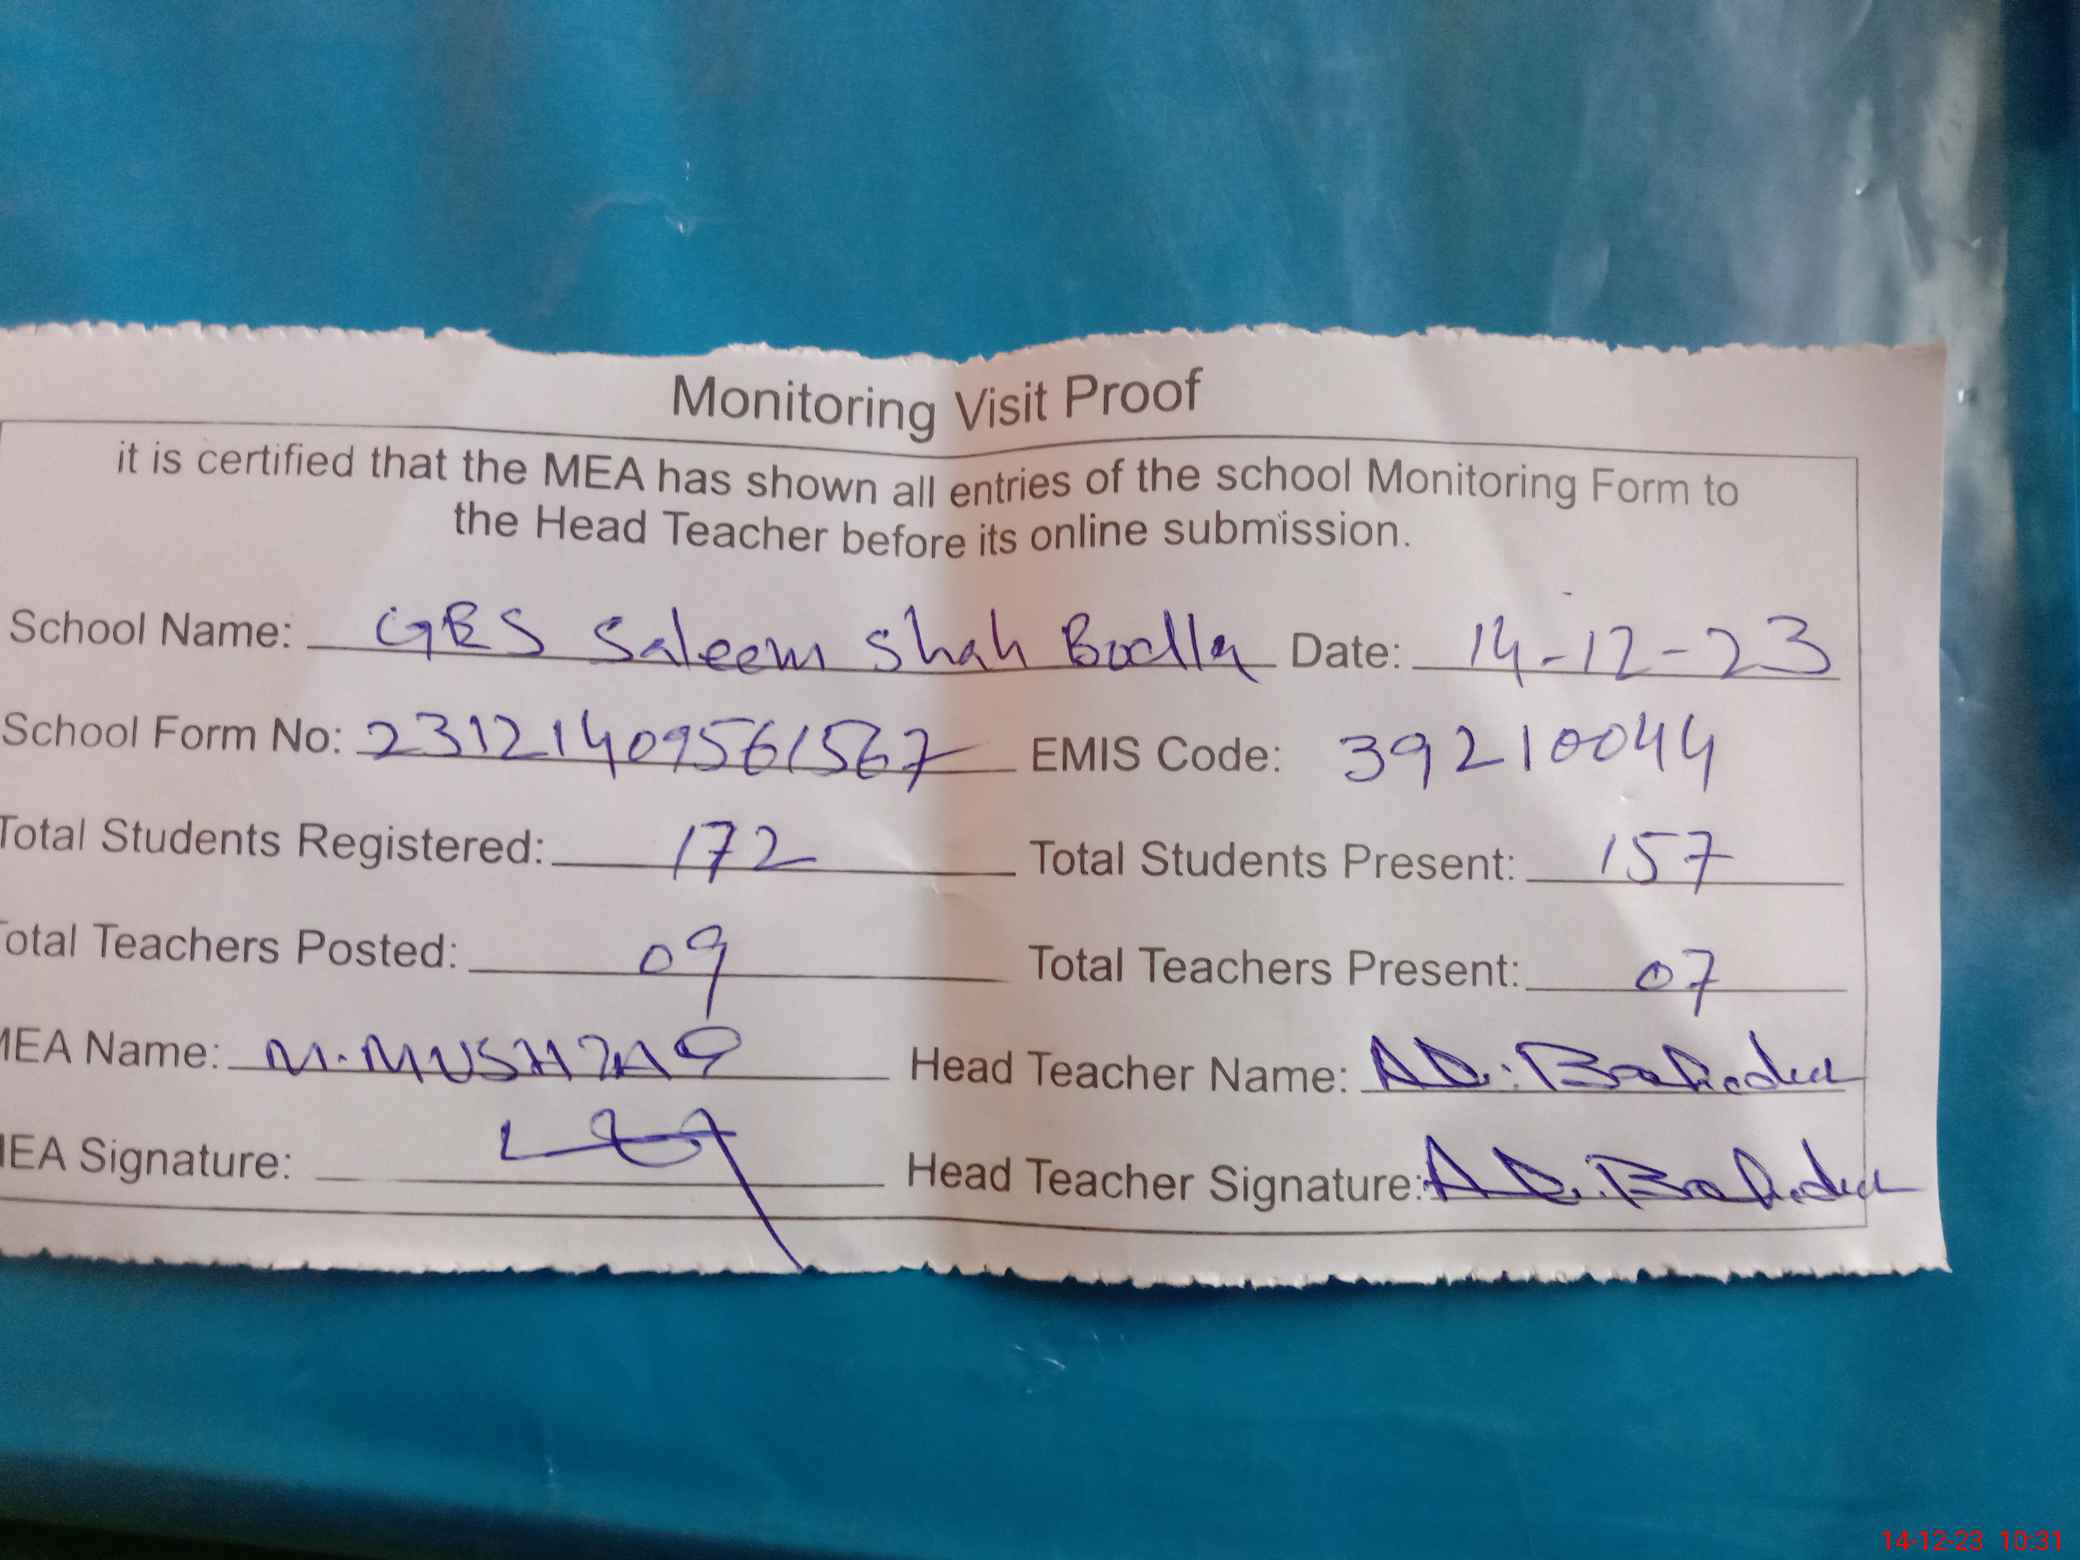 Monitoring Visit Proof
it is certified that the MEA has shown all entries of the school Monitoring Form to
the Head Teacher before its online submission.
School Name: GES Saleem Shah Bodla Date: 14-12-23
School Form No: 23121409561567 EMIS Code: 39210044
Total Students Registered: 172 Total Students Present: 157
otal Teachers Posted: 09 Total Teachers Present: 07
MEA Name: M. MUSHTAQ Head Teacher Name:
IEA Signature: Head Teacher Signature:
14-12-23 10:31